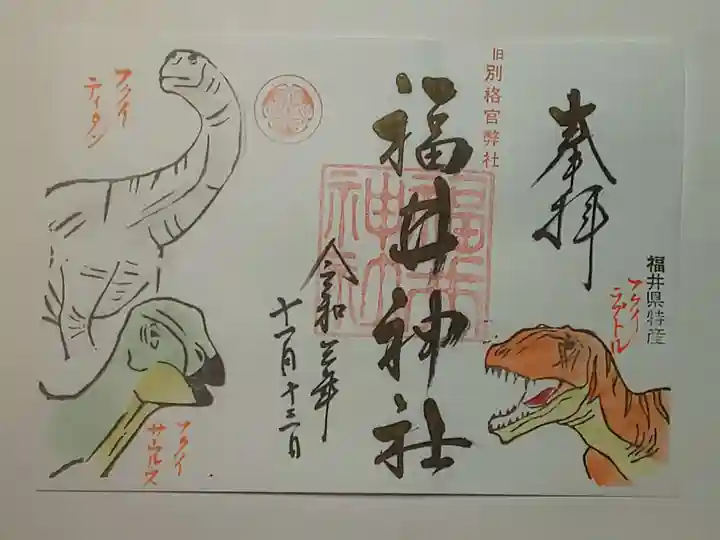 奉拝
福井県特産
フクイ
ラプトル
旧別格官幣社
福井神社
福井
神社
令和三年
十一月十三日
フクイ
ティタン
フクイ
サウルス